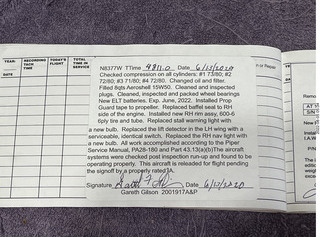 YEAR:
RECORDING TACH TIME
TODAY'S FLIGHT
TOTAL TIME IN SERVICE
DATE
N8377W TTime 4811.0 Date 6/13/2020
Checked compression on all cylinders: #1 73/80; #2
72/80; #3 71/80; #4 72/80. Changed oil and filter.
Filled 8qts Aeroshell 15W50. Cleaned and inspected
plugs. Cleaned, inspected and packed wheel bearings
New ELT batteries. Exp. June, 2022. Installed Prop
Guard tape to propeller. Replaced baffel seal to RH
side of the engine. Installed new RH rim assy, 600-6
6ply tire and tube. Replaced stall warning light with
a new bulb. Replaced the lift detector in the LH wing with a
serviceable, identical switch. Replaced the RH nav light with
a new bulb. All work accomplished according to the Piper
Service Manual, PA28-180 and Part 43.13(a)(b)The aircraft
systems were checked post inspection run-up and found to be
operating properly. This aircraft is released for flight pending
the signoff by a properly rated IA.
Signature Date 6/13/2020
Gareth Gilson 2001917A&P
n or Repair
YEAR
DATE
Remo
New
I.A.W